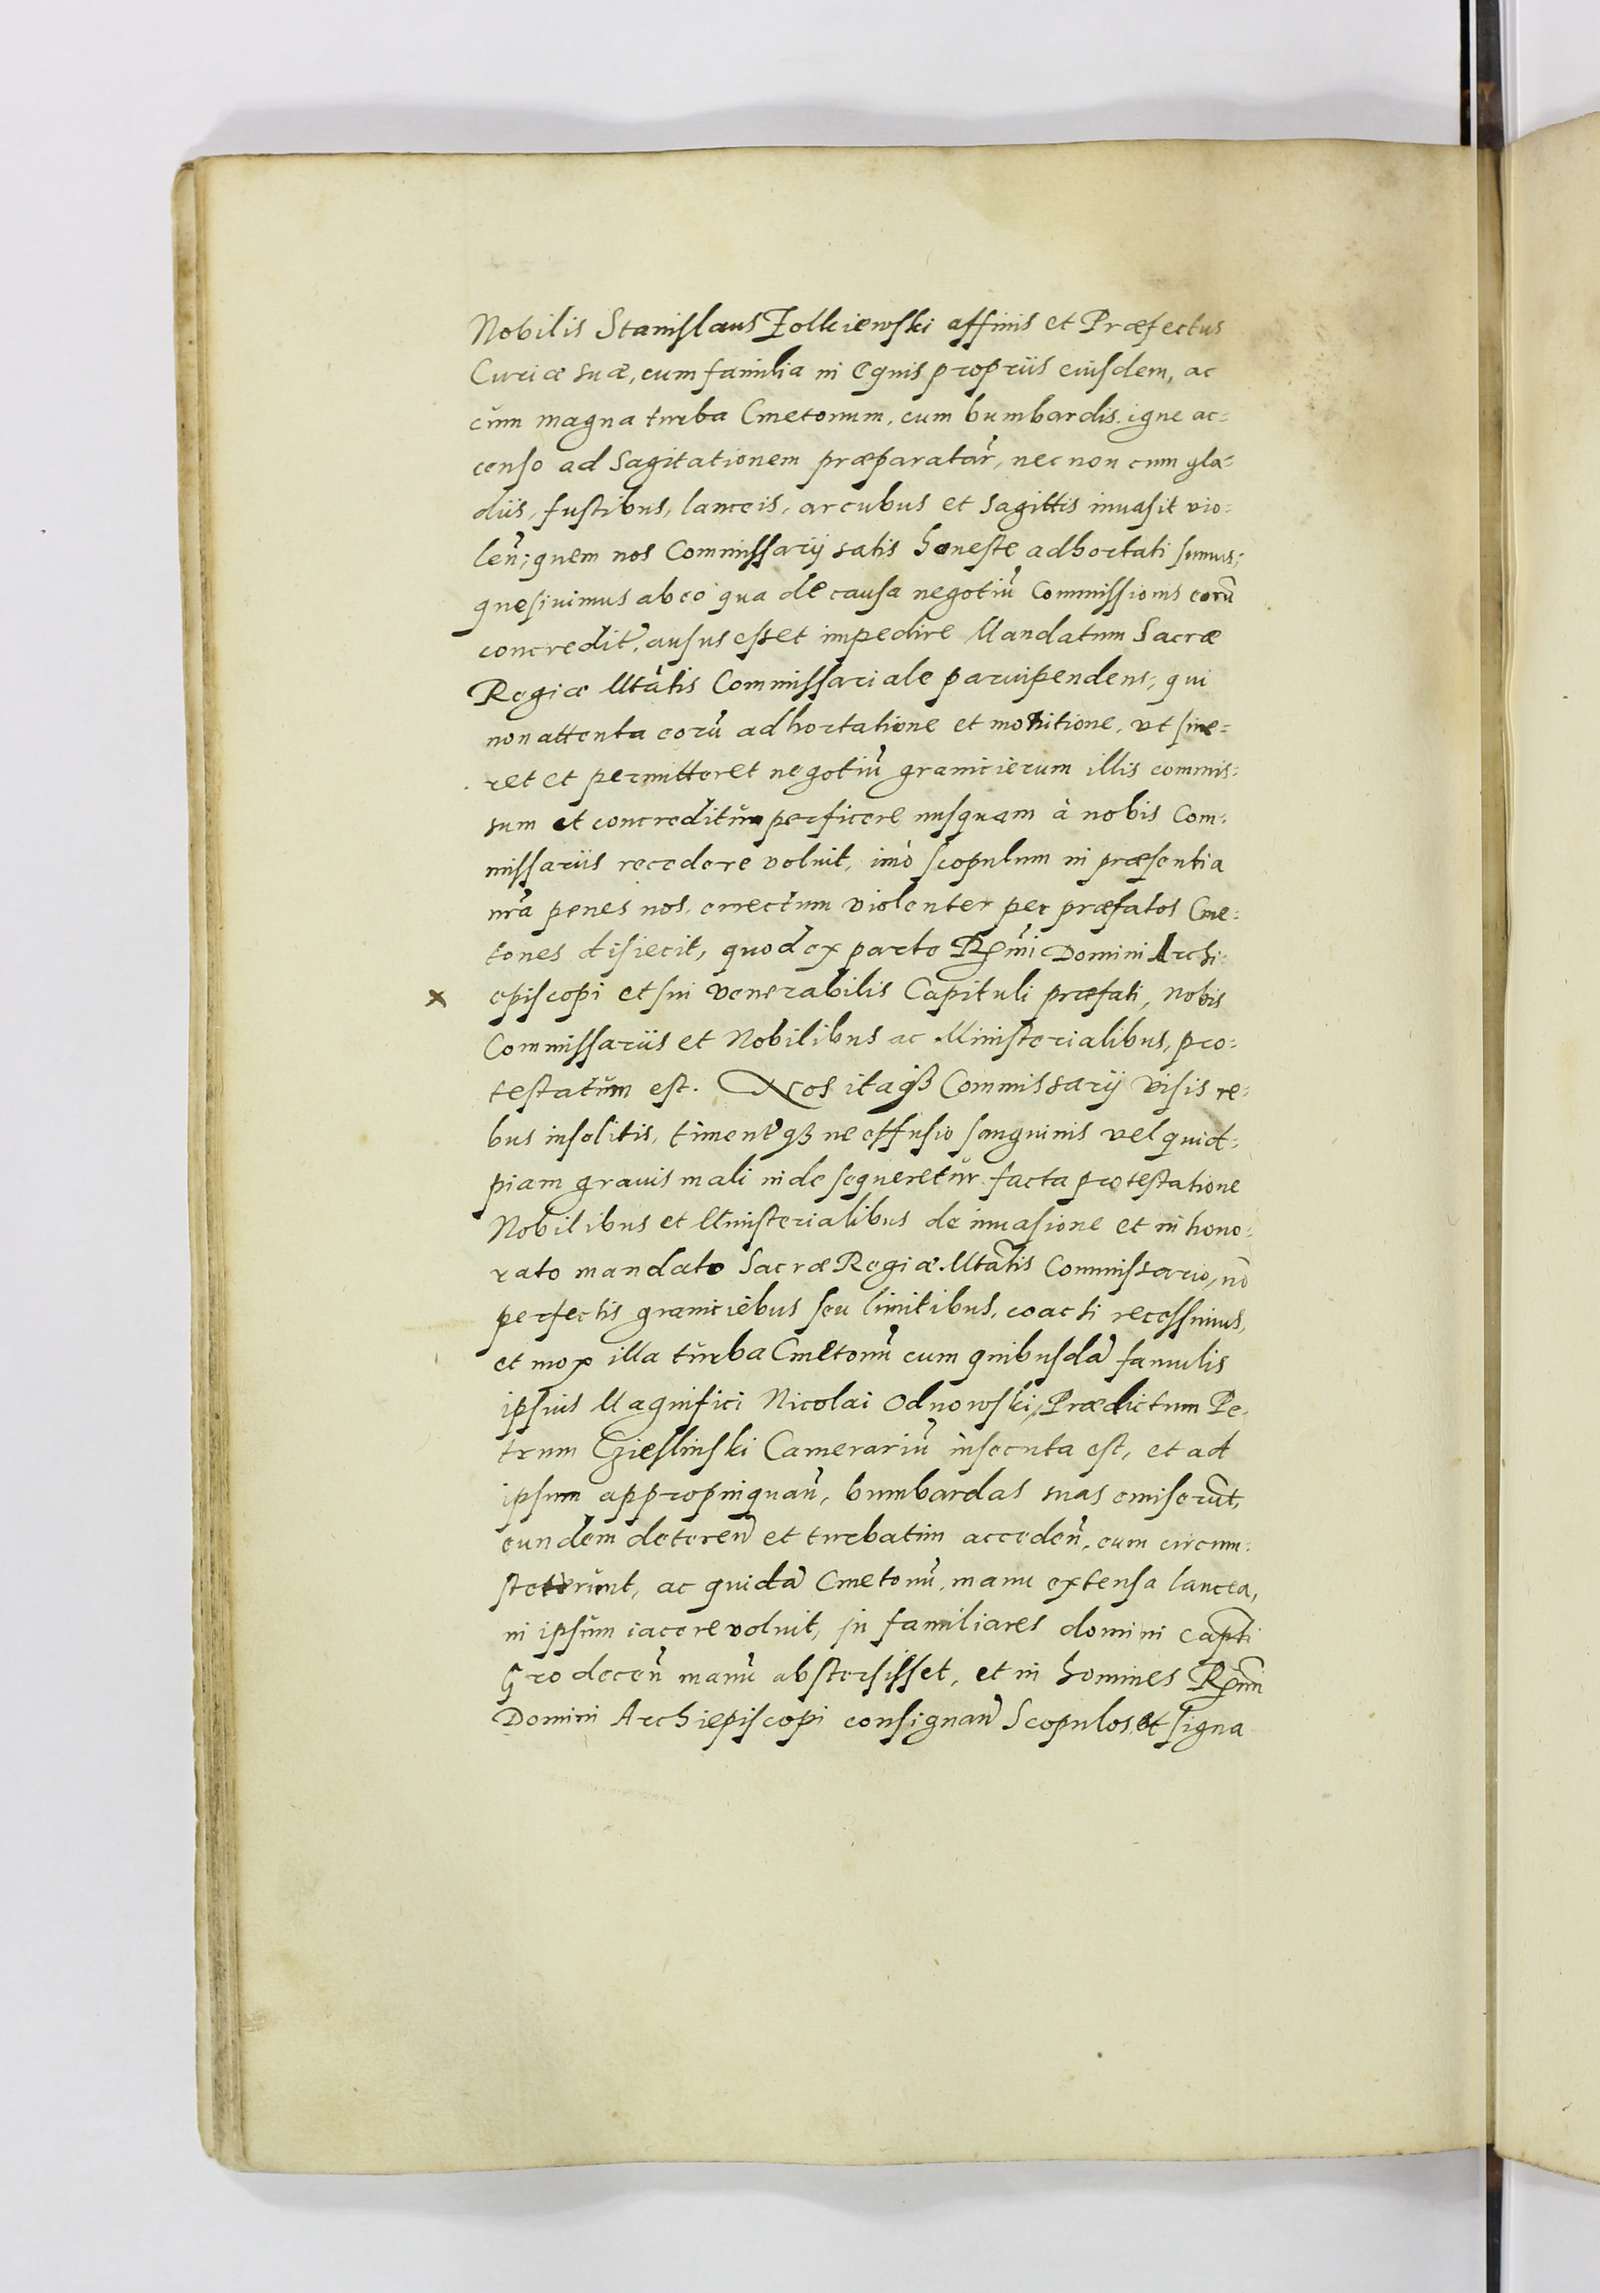 Nobilis Stanislaus Zolkiewski affinis et Præfectus
Curiæ suæ, cum familia in equis propriis eiusdem, ac
cum magna turba Cmetonum, cum bumbardis igne ac=
censo ad sagitationem præparatar̃, nec non cum gla=
diis, fustibus, lanceis, arcubus et sagittis inuasit vio=
leñ; quem nos Commissarij satis honeste adhortati sumus;
quesiuimus ab eo qua de causa negotiũ Commissionis eorũ
concredit̃, ausus esset impedire Mandatum Sacræ
Regiæ Mtãtis Commissariale paruipendens, qui
non attenta eorũ adhortatione et monitione, vt sine=
ret et permitteret negotiũ granicierum illis commis=
sum et concreditum perficere nusquam à nobis Com=
missariis recedere voluit, imò scopulum in præsentia
nr̃a penes nos, errectum violenter per præfatos Cme=
tones disiecit, quod ex parte R̃mi Domini Archi=
× episcopi et sui venerabilis Capituli præfati, nobis
Commissariis et Nobilibus ac Ministerialibus, pro=
testatum est. Nos itaqȝ Commissarij visis re=
bus insolitis, timent̃qȝ ne effusio sanguinis vel quid=
piam grauis mali inde sequeretur facta protestatione
Nobilibus et Ministerialibus de inuasione et in hono=
rato mandato Sacræ Regiæ Mtãtis Commissario, nõ
perfectis graniciebus seu limitibus, coacti recessimus,
et mox illa turba Cmetonũ cum quibusdã famulis
ipsius Magnifici Nicolai Odnowski, Prædictum Pe=
trum Gieslinski Camerariũ insecuta est, et ad
ipsum appropinquañ, bumbardas suas emiserũt,
eundem detereñ et turbatim accedeñ, eum circum=
steterunt, ac quidã Cmetonũ, manu extensa lancea,
in ipsum iacere voluit, ni familiares domini capt̃i
Grodeceñ manũ abstersisset, et in homines R̃mi
Domini Archiepiscopi consignañ Scopulos et signa